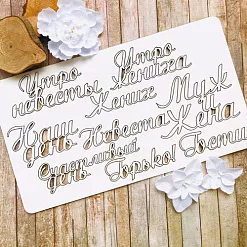 Утро невесты
Утро жениха
Жених
Муж
Наш день
Невеста
Жена
Счастливый день
Горько!
Гости